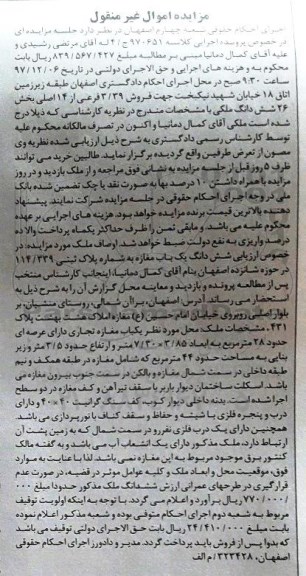 مزایده اموال غیر منقول
اجرای احکام حقوقی شعبه چهارم اصفهان در نظر دارد جلسه مزایده ای
در خصوص پرونده اجرایی کلاسه ۹۷۰۶۵۱ ج/۴ له آقای مرتضی رشیدی و
علیه آقای کمال دمانیا مبنی بر مطالبه مبلغ ۸۳۹/۵۶۷/۴۲۷ ریال بابت
محکوم به و هزینه های اجرایی و حق الاجرای دولتی در تاریخ ۹۷/۱۲/۰۶
ساعت ۹:۳۰ صبح در محل اجرای احکام دادگستری اصفهان طبقه زیرزمین
اتاق ۱۸ خیابان شهید نیکبخت جهت فروش ۳۱۳۹ فرعی از ۱۴ اصلی بخش
۲۶ شش دانگ ملکی با مشخصات مندرج در نظریه کارشناسی که ذیلا درج
شده است ملکی آقای کمال دمانیا و اکنون در تصرف مالکانه محکوم علیه
توسط کارشناس رسمی دادگستری به شرح ذیل ارزیابی شده نظریه وی
مصون از تعرض طرفین واقع گردیده برگزار نماید. طالبین خرید می توانند
ظرف ۵ روز قبل از جلسه مزایده به نشانی فوق مراجعه و از ملک بازدید و در روز
مزایده با همراه داشتن ۱۰ درصد بها به صورت نقد یا چک تضمین شده بانک
ملی در وجه اجرای احکام حقوقی در جلسه مزایده شرکت نمایند. پیشنهاد
دهنده بالاترین قیمت برنده مزایده خواهد بود. هزینه های اجرایی بر عهده
محکوم علیه می باشد. و مابقی ثمن را ظرف حداکثر یکماه پرداخت والا ده
درصد واریزی به نفع دولت ضبط خواهد شد. اوصاف ملک مورد مزایده: در
خصوص ارزیابی شش دانگ یک باب مغازه به شماره پلاک ثبتی ۱۱۴/۳۳۹
در حوزه شانزده اصفهان بنام آقای کمال دمانیا، اینجانب کارشناس منتخب
پس از مطالعه پرونده و بازدید و معاینه محل گزارش آن را به شرح ذیل به
استحضار می رساند. آدرس: اصفهان، برآن شمالی، روستای منشیان، بر
بلوار اصلی روبروی خیابان امام حسن (ع) مغازه املاک هشت بهشت پلاک
۴۳۱، مشخصات ملک: محل مورد نظر یکباب مغازه تجاری دارای عرصه ای
حدود ۲۸ مترمربع به ابعاد ۳/۸۵×۷/۳۰ متر و ارتفاع حدود ۳/۵ متر و زیر
بنایی به مساحت حدود ۴۴ مترمربع که شامل مغازه در طبقه همکف و نیم
طبقه داخلی در سمت شمال مغازه و بالکن در سمت جنوب بیرون مغازه می
باشد. اسکلت ساختمان دیوار باربر با سقف تیرآهن و کف مغازه در دو سطح
اجرا شده است. بدنه داخلی دیوار کوب، کف سنگ گرانیت ۴۰×۴۰ و دارای
درب و پنجره فلزی با شیشه و حفاظ و سقف کناف با نورپردازی می باشد.
همچنین دارای یک درب فلزی نفررو در سمت شمال که به زمین پشت آن
ارتباط دارد، ملک مذکور دارای یک انشعاب آب می باشد و به گفته مالک
کنتور برق موجود مربوط به این مغازه نمی باشد. لذا با عنایت به موارد
فوق، موقعیت محل و ابعاد ملک و کلیه عوامل موثر در قضیه، در صورت عدم
قرارگیری در طرحهای عمرانی ارزش ششدانگ ملک مذکور حدودا مبلغ ۰۰۰
/۷۷۰/۰۰۰ ریال برآورد و اعلام می گردد. با توجه به اینکه اولویت توقیف
مربوط به شعبه دوم اجرای احکام متوقی بوده و شعبه مذکور اعلام نموده
بابت مبلغ ۲۴/۴۱۰/۰۰۰ ریال بابت حق الاجرای دولتی توقیف می باشد
که بدوا پس از فروش باید پرداخت گردد. مدیر و دادورز اجرای احکام حقوقی
اصفهان، ۳۲۳۴۲۸/م الف